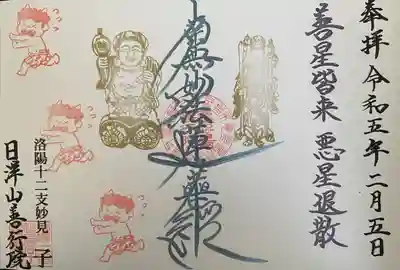 奉拝 令和五年二月五日
善星皆来 悪星退散
南無妙法蓮華経
洛陽十二支妙見 子
日洋山善行院